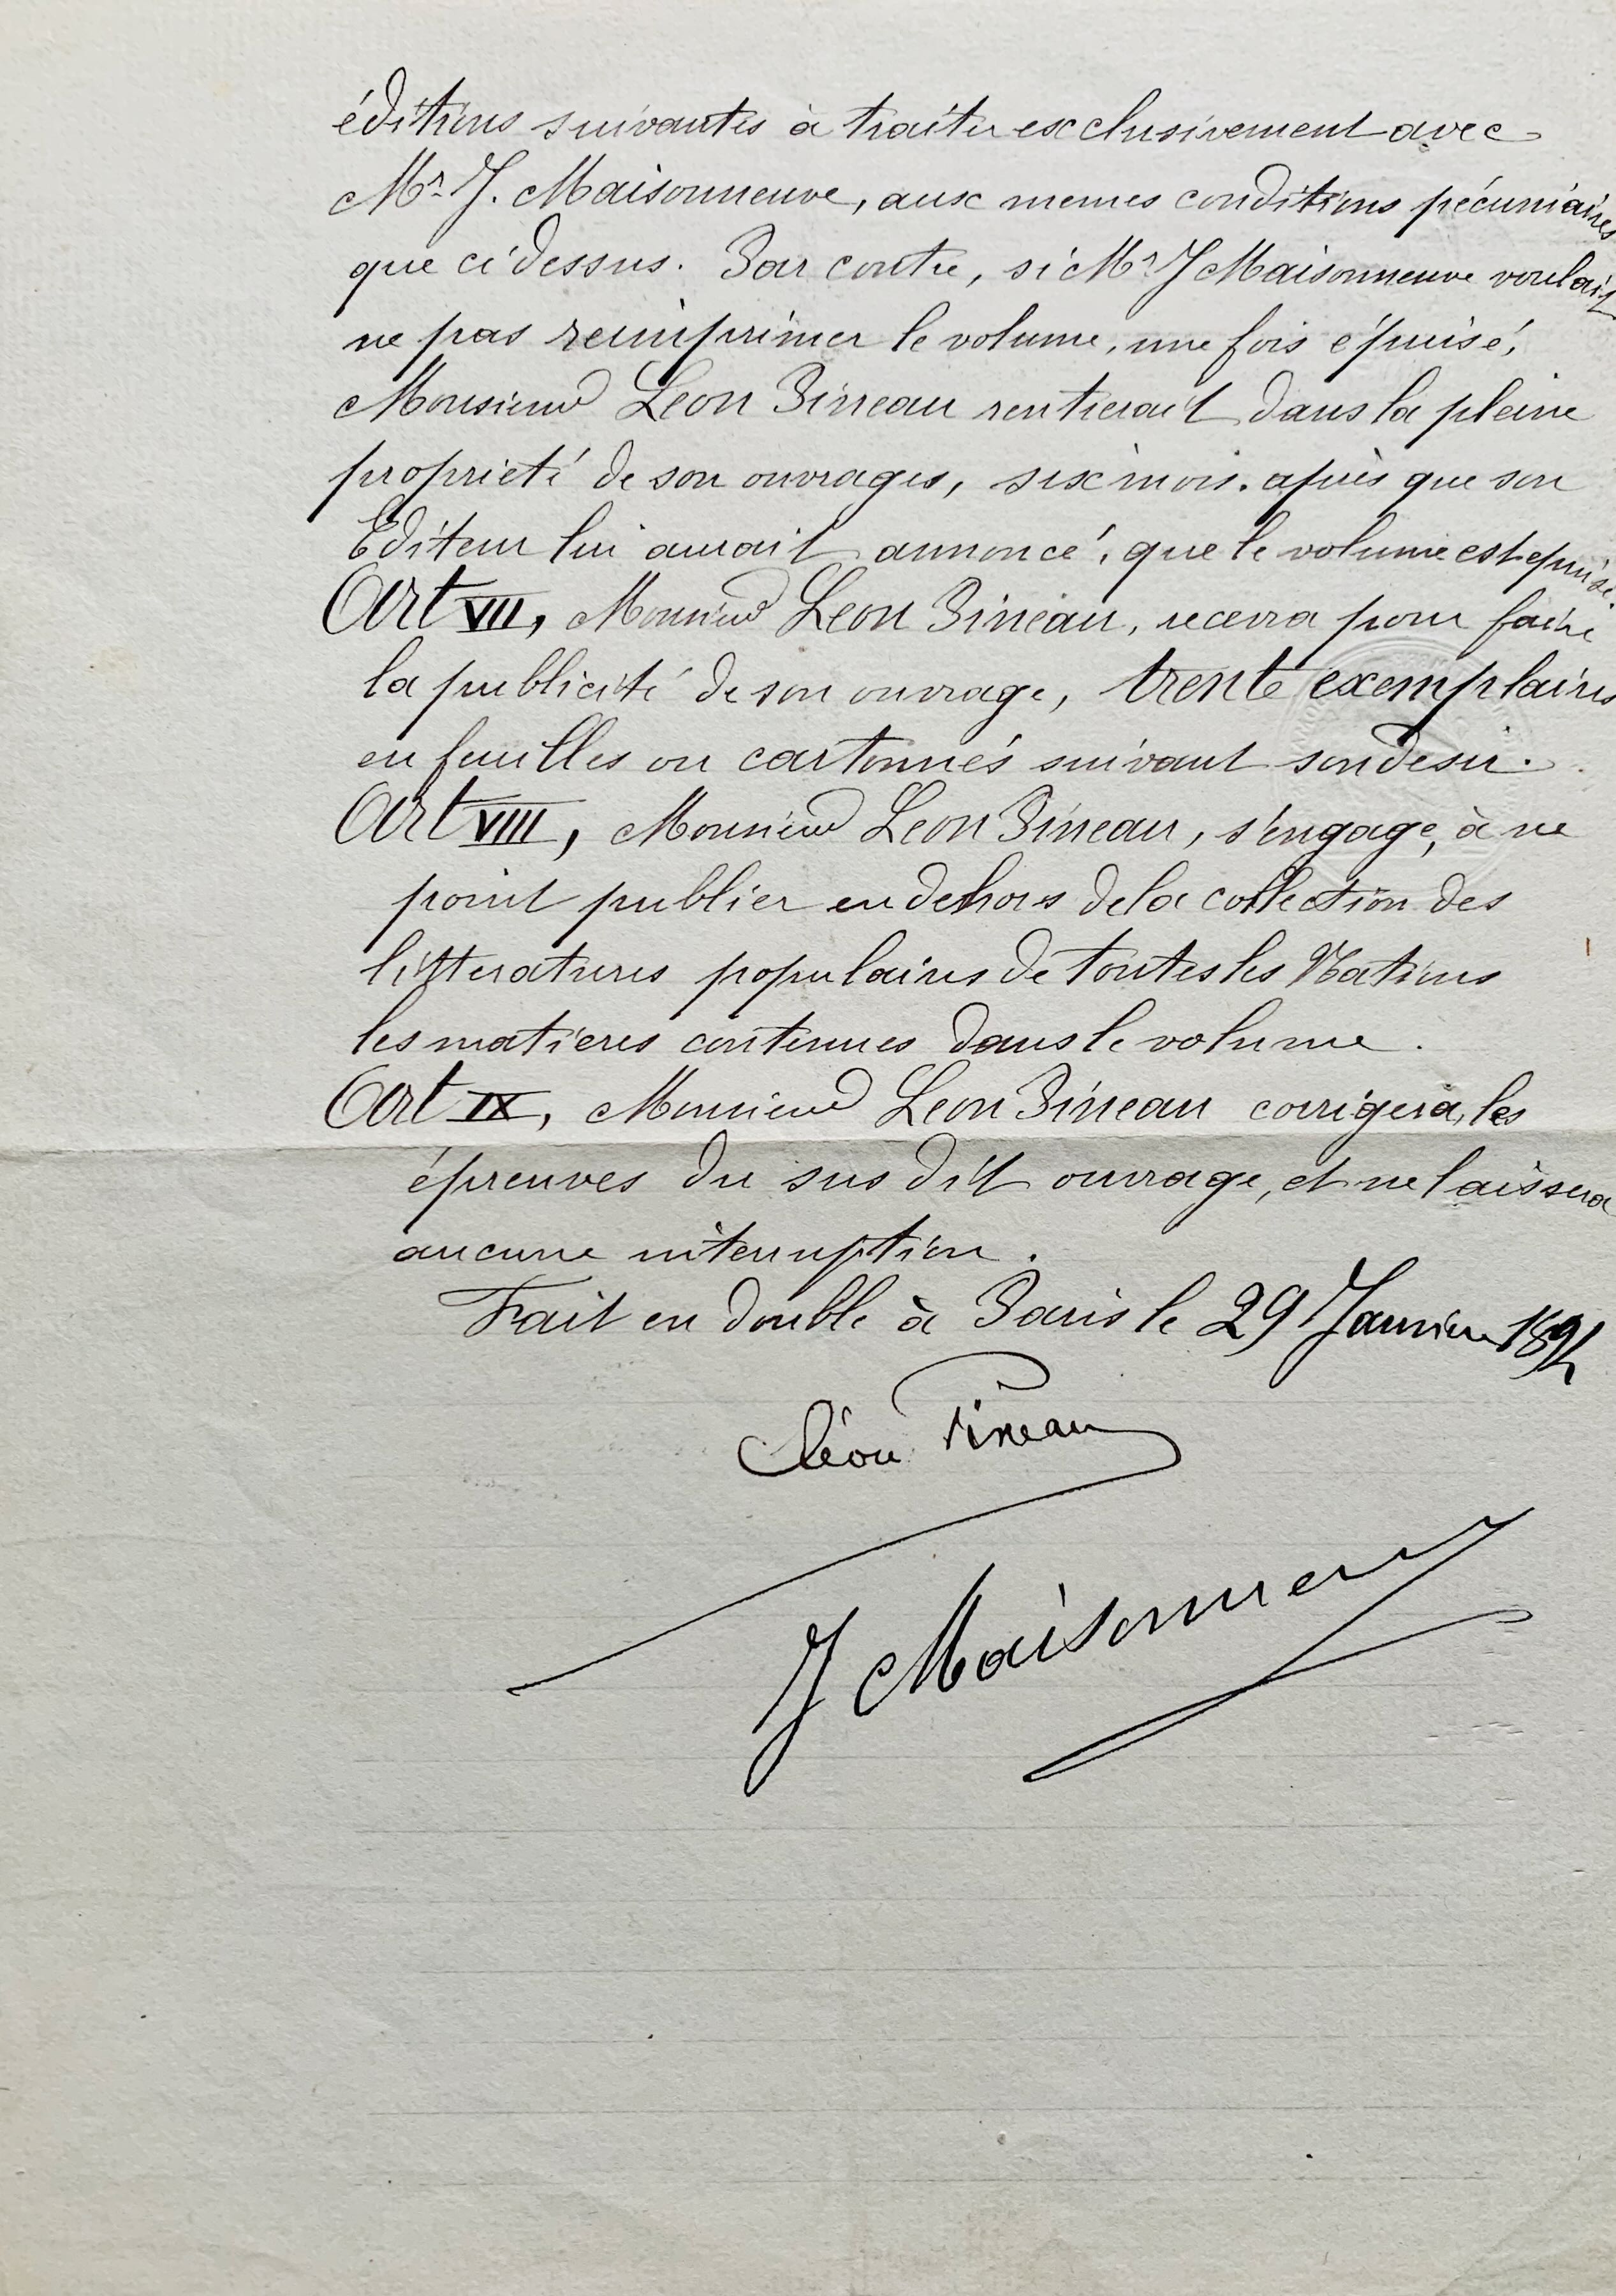 éditions suivantes à traiter exclusivement avec
Mr. J. Maisonneuve, aux memes conditions pécuniaires
que ci dessus. Par contre, si Mr J Maisonneuve voulait
ne pas reimprimer le volume, une fois épuisé,
Monsieur Leon Pineau rentrerait dans la pleine
proprieté de son ouvrages, six mois. après que son
Editeur lui aurait annoncé, que le volume est epuisé.
Art VII, Monsieur Leon Pineau, recevra pour faire
la publicité de son ouvrage, trente exemplaires
en feuilles ou cartonnés suivant son desir.
Art VIII, Monsieur Leon Pineau, s'engage, à ne
point publier en dehors de la collection des
litteratures populaires de toutes les Nations
les matieres contenues dans le volume.
Art IX, Monsieur Leon Pineau corrigera, les
épreuves du sus dit ouvrage, et ne laissera
aucune interruption.
Fait en double à Paris le 29 Janvier 1894
Léon Pineau
J Maisonneuve